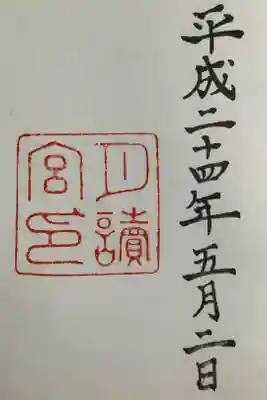 平成二十四年五月二日
月讀
宮印